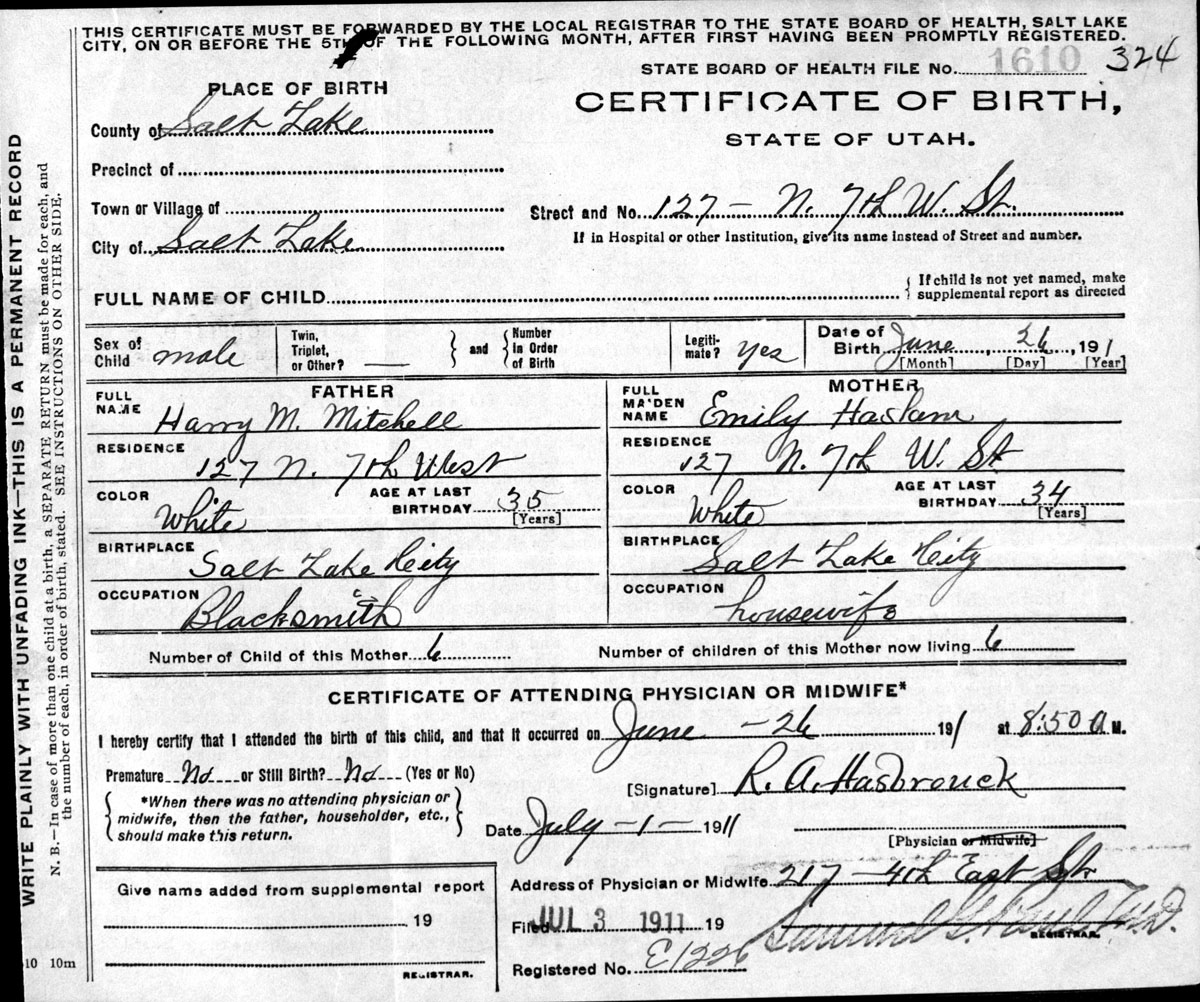 THIS CERTIFICATE MUST BE FORWARDED BY THE LOCAL REGISTRAR TO THE STATE BOARD OF HEALTH, SALT LAKE
CITY, ON OR BEFORE THE 5TH OF THE FOLLOWING MONTH, AFTER FIRST HAVING BEEN PROMPTLY REGISTERED.
STATE BOARD OF HEALTH FILE No. 1610 324
PLACE OF BIRTH
CERTIFICATE OF BIRTH,
STATE OF UTAH.
County of Salt Lake
Precinct of
Town or Village of
Street and No. 127 - N. 7th W. St.
City of Salt Lake
If in Hospital or other Institution, give its name instead of Street and number.
FULL NAME OF CHILD
If child is not yet named, make
supplemental report as directed
Sex of Child male
Twin, Triplet, or Other? —
and
Number In Order of Birth
Legiti- mate? yes
Date of Birth June, 26, 1911
[Month] [Day] [Year]
FATHER
FULL NAME Harry M. Mitchell
RESIDENCE 127 N. 7th West
COLOR White
AGE AT LAST BIRTHDAY 35 [Years]
BIRTHPLACE Salt Lake City
OCCUPATION Blacksmith
MOTHER
FULL MAIDEN NAME Emily Haslam
RESIDENCE 127 N. 7th W. St
COLOR White
AGE AT LAST BIRTHDAY 34 [Years]
BIRTHPLACE Salt Lake City
OCCUPATION housewife
Number of Child of this Mother 6
Number of children of this Mother now living 6
CERTIFICATE OF ATTENDING PHYSICIAN OR MIDWIFE*
I hereby certify that I attended the birth of this child, and that it occurred on June - 26 1911 at 8:50 a M.
Premature No or Still Birth? No (Yes or No)
*When there was no attending physician or
midwife, then the father, householder, etc.,
should make this return.
[Signature] R. A. Hasbrouck
Date July - 1 - 1911
[Physician or Midwife]
Give name added from supplemental report
19
REGISTRAR.
Address of Physician or Midwife 217 - 4th East St.
Filed JUL 3 1911 19
Samuel G. Paul M.D.
REGISTRAR.
Registered No. E1226
10 10m
WRITE PLAINLY WITH UNFADING INK—THIS IS A PERMANENT RECORD
N. B.—In case of more than one child at a birth, a SEPARATE RETURN must be made for each, and
the number of each, in order of birth, stated. SEE INSTRUCTIONS ON OTHER SIDE.